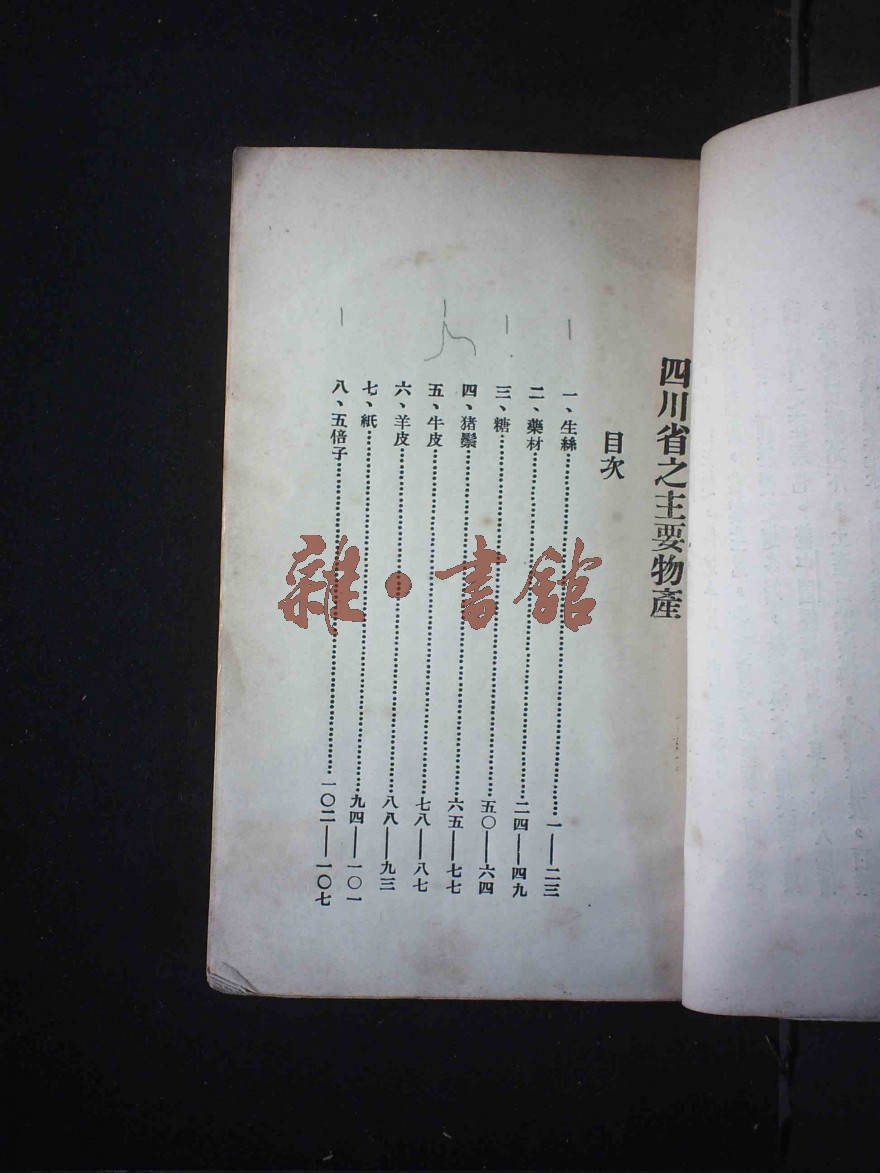 四川省之主要物產
目次
一、生絲……一——二三
二、藥材……二四——四九
三、糖……五〇——六四
四、猪鬃……六五——七七
五、牛皮……七八——八七
六、羊皮……八八——九三
七、紙……九四——一〇一
八、五倍子……一〇二——一〇七
雜·書館